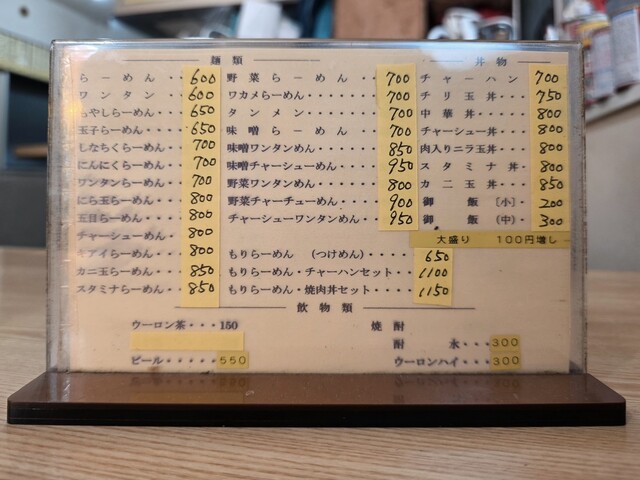 麺類
らーめん・・600
ワンタン・・600
もやしらーめん・・・650
玉子らーめん・・・・650
しなちくらーめん・・700
にんにくらーめん・・700
ワンタンらーめん・・700
にら玉らーめん・・・800
五目らーめん・・・・800
チャーシューめん・・800
ミアイらーめん・・・800
カニ玉らーめん・・・850
スタミナらーめん・・850
野菜らーめん・・700
ワカメらーめん・・・・700
タンメン・・・・700
味噌らーめん・・700
味噌ワンタンめん・・・850
味噌チャーシューめん・・・950
野菜ワンタンめん・・・・800
野菜チャーチューめん・・・900
チャーシューワンタンめん・・950
もりらーめん (つけめん)・・・・650
もりらーめん・チャーハンセット・・1100
もりらーめん・焼肉丼セット・・・・1150
丼物
チャーハン 700
チリ玉丼・・・750
中華丼・・・・・800
チャーシュー丼・・・800
肉入りニラ玉丼・・・800
スタミナ丼・・800
カニ玉丼・・・・850
御飯〔小〕・200
御飯(中)・300
大盛り 100円増し
飲物類
ウーロン茶・・・150
ビール・・・・・550
焼酎
酎 水・・・300
ウーロンハイ・・・300